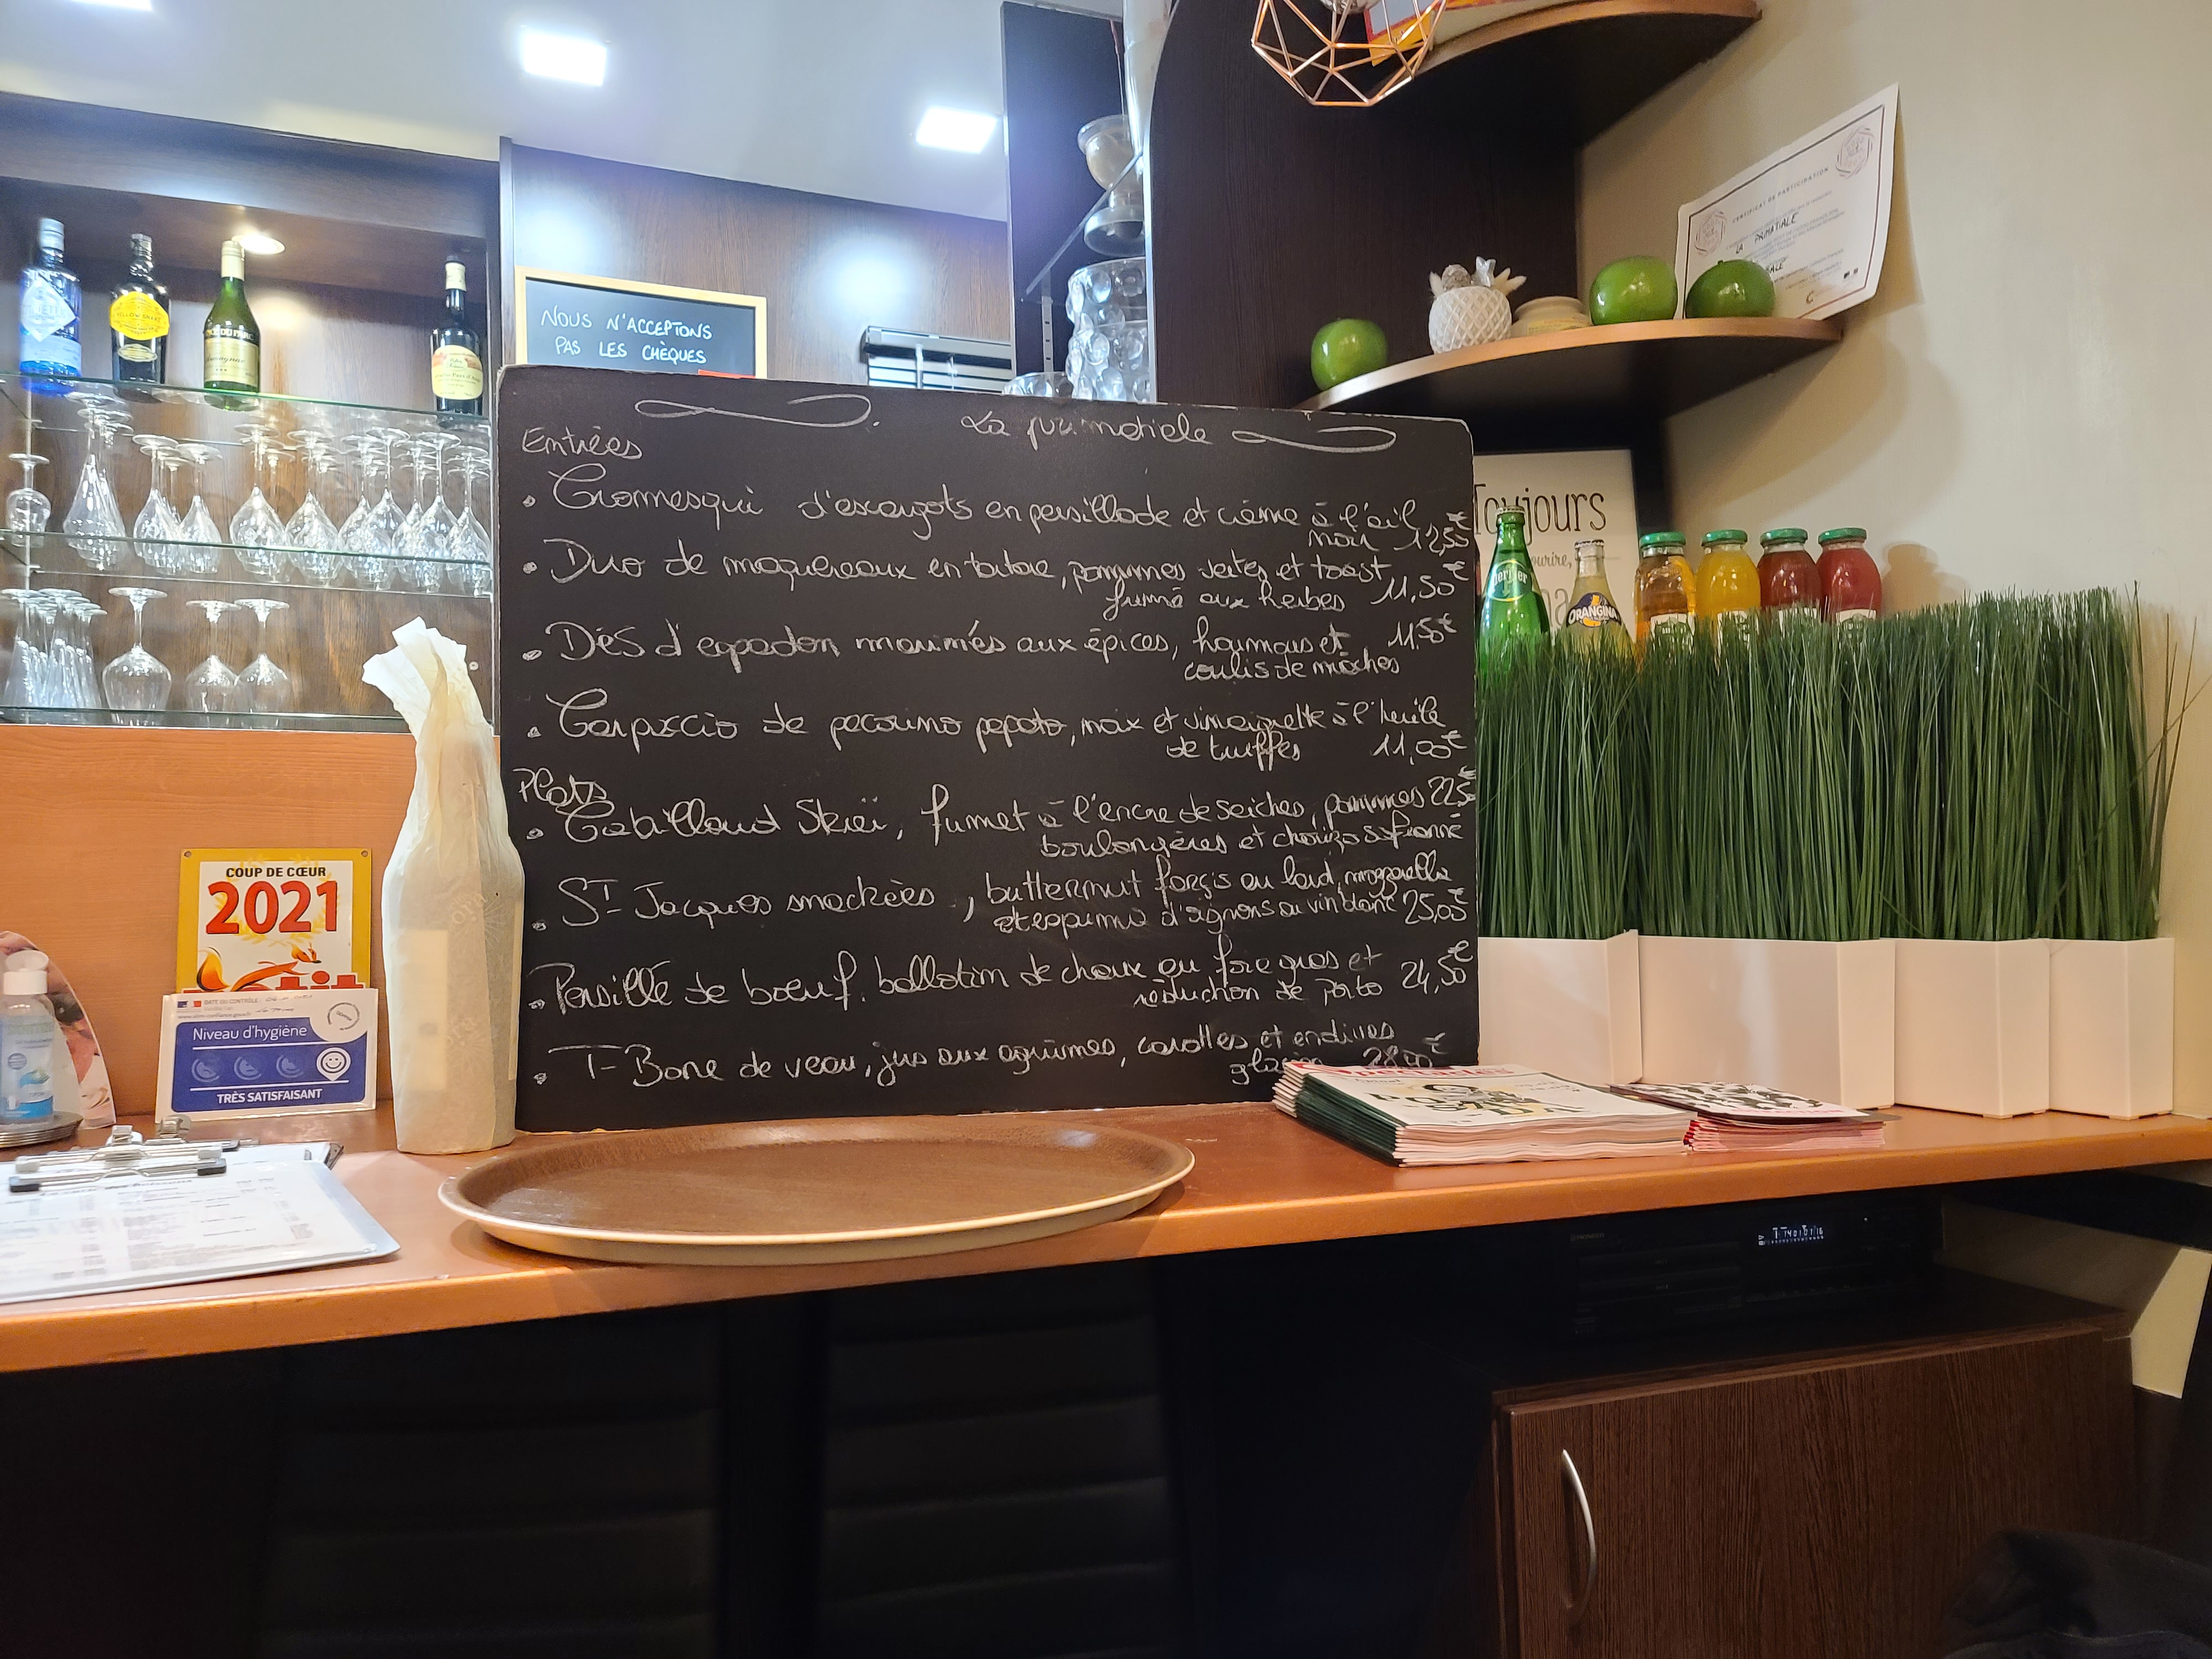 NOUS N'ACCEPTONS
PAS LES CHÈQUES
CERTIFICAT DE PARTICIPATION
LA PRIMATIALE
La primatiale
Entrées
• Cromesqui d'escargots en persillade et crème à l'ail
noir 12,50€
• Duo de maquereaux en tartare, pommes vertes et toast
fumé aux herbes 11,50€
• Dés d'espadon marinés aux épices, houmous et 11,50€
coulis de mâches
• Carpaccio de pecorino pepato, noix et vinaigrette à l'huile
de truffes 11,00€
Plats
• Cabillaud Skreï, fumet à l'encre de seiches, pommes 22,5
boulangères et chorizo safranné
• St Jacques snackées, butternut farçis au lard, mozzarella
et espuma d'oignons au vin blanc 25,00€
• Persillé de bœuf, ballotim de choux au foie gras et
réduction de porto 24,50€
• T-Bone de veau, jus aux agrumes, carottes et endives
28,00€
Toujours
perrier
ORANGINA
YELLOW SNAKE
COUP DE CŒUR
2021
petit
DATE DU CONTRÔLE :
Niveau d'hygiène
TRÈS SATISFAISANT